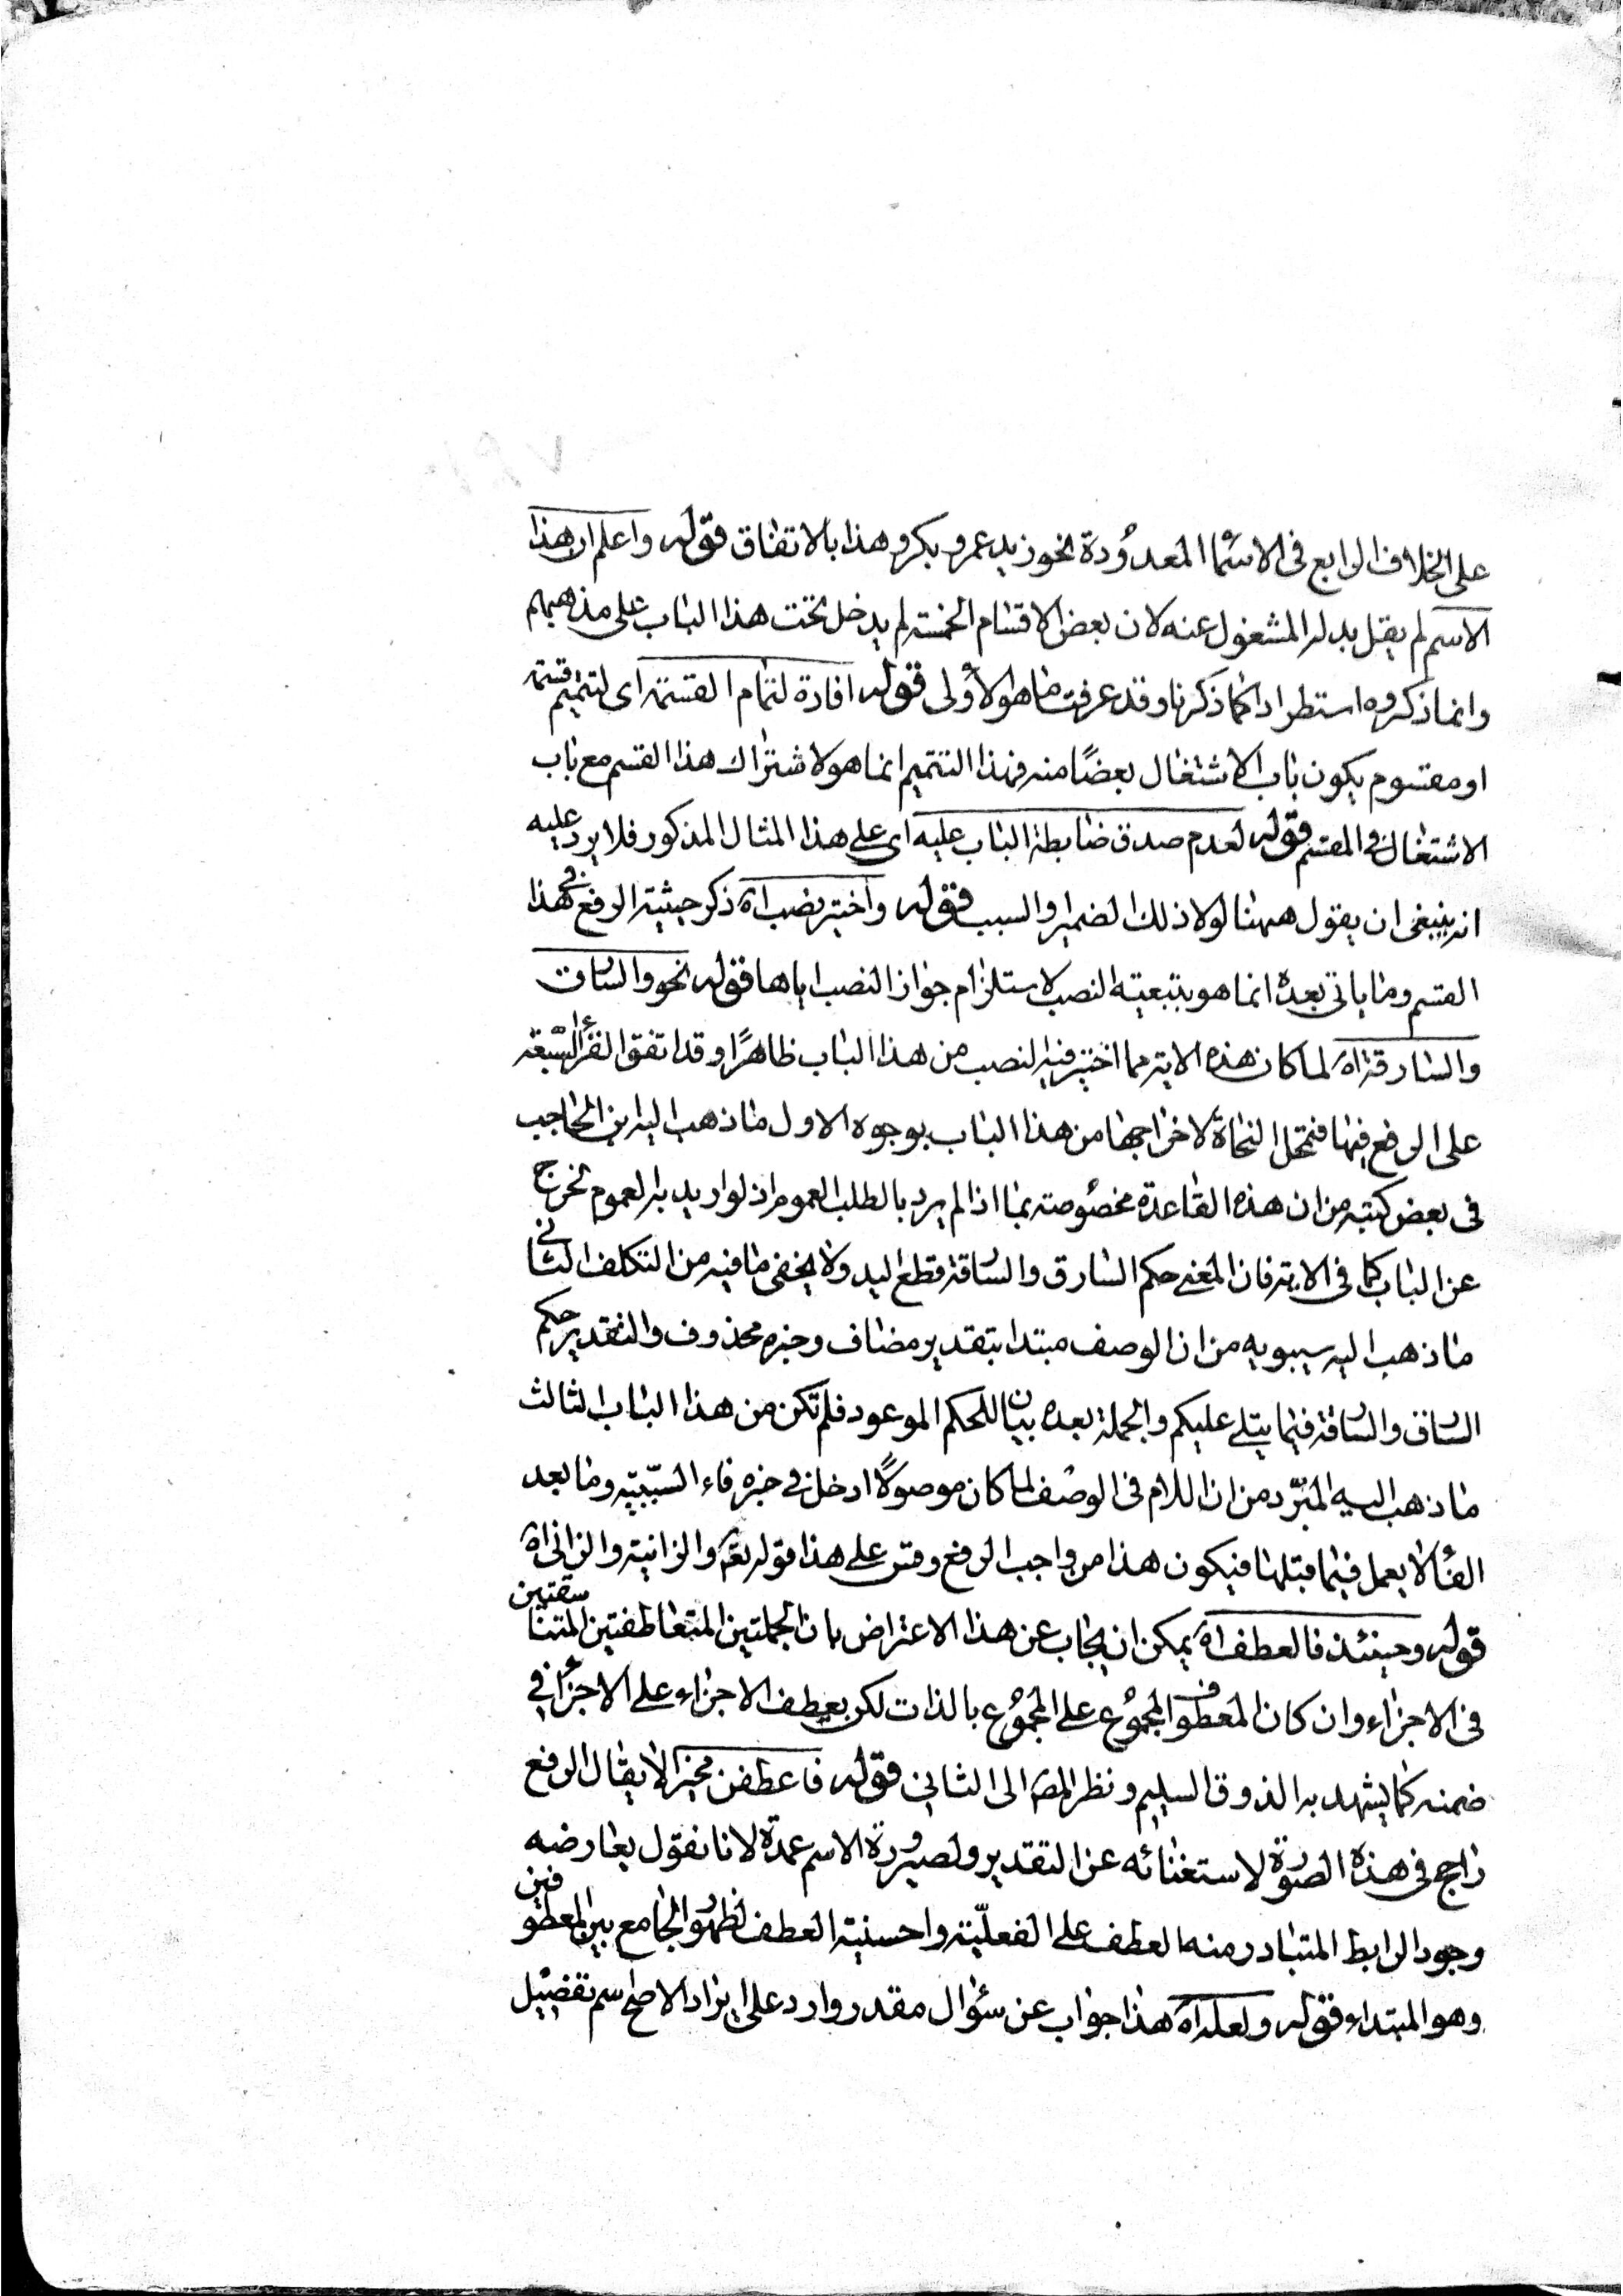 على الخلاف الرابع فى الاسماء المعدودة نحو زيد عمرو بكر وهذا بالاتفاق قوله واعلم ان هذا
الاسم لم يقل بدله المشغول عنه لان بعض الاقسام الخمسة لم يدخل تحت هذا الباب على مذهبهم
وانما ذكروه استطرادا كما ذكرنا وقد عرفت ما هو الاولى قوله افادة لتمام القسمة اى لتتميم قسمة
او مقسوم يكون باب الاشتغال بعضًا منه فهذا التتميم انما هو لاشتراك هذا القسم مع باب
الاشتغال فى المقسم قوله لعدم صدق ضابطة الباب عليه اى على هذا المثال المذكور فلا يرد عليه
انه ينبغى ان يقول ههنا لولا ذلك الضمير والسبب قوله واختير نصب اه ذكر حيثية الرفع فى هذا
القسم وما ياتى بعده انما هو بتبعية النصب لاستلزام جواز النصب اياها قوله نحو والسارق
والسارقة اه لما كان هذه الاية مما اختير فيه النصب من هذا الباب ظاهرًا وقد اتفق القراء السبعة
على الرفع فيها فتمحل النحاة لاخراجها من هذا الباب بوجوه الاول ما ذهب اليه ابن الحاجب
فى بعض كتبه من ان هذه القاعدة مخصوصة بما اذا لم يرد بالطلب العموم اذ لو اريد به العموم تخرج
عن الباب كما فى الاية فان المعنى حكم السارق والسارقة قطع اليد ولا يخفى ما فيه من التكلف الثانى
ما ذهب اليه سيبويه من ان الوصف مبتدا بتقدير مضاف وخبره محذوف والتقدير حكم
السارق والسارقة فيما يتلى عليكم والجملة بعده بيان للحكم الموعود فلم تكن من هذا الباب الثالث
ما ذهب اليه المبرّد من ان اللام فى الوصف لما كان موصولًا ادخل فى خبره فاء السببية وما بعد
الفاء لا يعمل فيما قبلها فيكون هذا من واجب الرفع وقس على هذا قوله تعم والزانية والزانى اه
قوله وحينئذ فالعطف اه يمكن ان يجاب عن هذا الاعتراض بان الجملتين المتعاطفتين المتناسقتين
فى الاجزاء وان كان المعطوف المجموع على المجموع بالذات لكن يعطف الاجزاء على الاجزاء فى
ضمنه كما يشهد به الذوق السليم ونظر المص الى الثانى قوله فاعطفن مخيرا لا يقال الرفع
راجح فى هذه الصورة لاستغنائه عن التقدير ولصيرورة الاسم عمدة لانا نقول يعارضه
وجود الرابط المتبادر منه العطف على الفعليّة واحسنية العطف لظهور الجامع بين المعطوفين
وهو المبتداء قوله ولعله اه هذا جواب عن سؤال مقدر وارد على ايراد الاصح اسم تفضيل